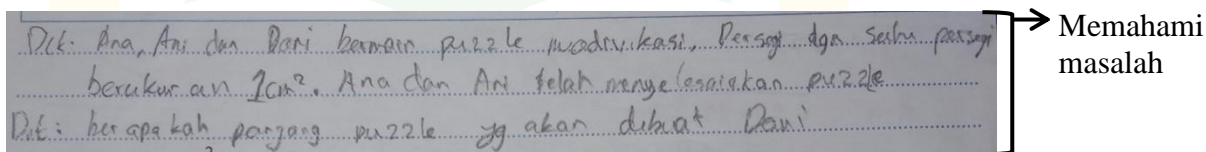 Dik: Ana, Ani dan Dani bermain puzzle modivikasi, Persegi dgn satu persegi
berukuran 1cm². Ana dan Ani telah menyelesaiakan puzzle
Dit: berapakah panjang puzzle yg akan dibuat Dani
Memahami
masalah